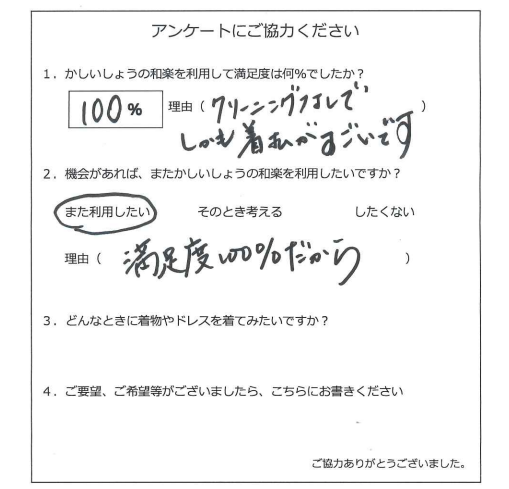 アンケートにご協力ください
1．かしいしょうの和楽を利用して満足度は何％でしたか？
100％ 理由（クリーニングなしで）
しかも着払がすごいです
2．機会があれば、またかしいしょうの和楽を利用したいですか？
また利用したい そのとき考える したくない
理由（満足度100%だから）
3．どんなときに着物やドレスを着てみたいですか？
4．ご要望、ご希望等がございましたら、こちらにお書きください
ご協力ありがとうございました。